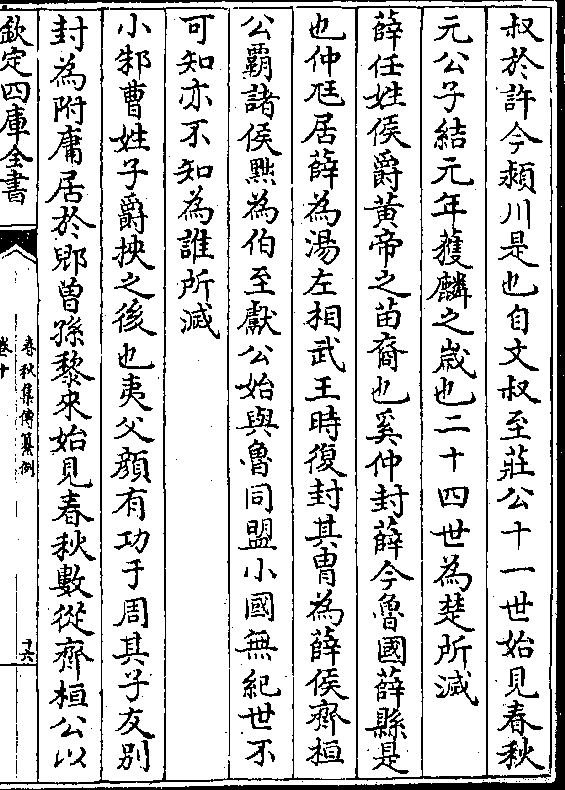 叔於許今潁川是也自文叔至莊公十一世始見春秋
元公子結元年獲麟之歳也二十四世為楚所滅
薛任姓侯爵黄帝之苗裔也奚仲封薛今魯國薛縣是
也仲虺居薛為湯左相武王時復封其胄為薛侯齊桓
公霸諸侯黜為伯至獻公始與魯同盟小國無紀世不
可知亦不知為誰所滅
小邾曹姓子爵挾之後也夷父顔有功于周其子友别
封為附庸居於郳曾孫黎來始見春秋數從齊桓公以
欽定四庫全書
春秋集傳纂例
卷十
十六